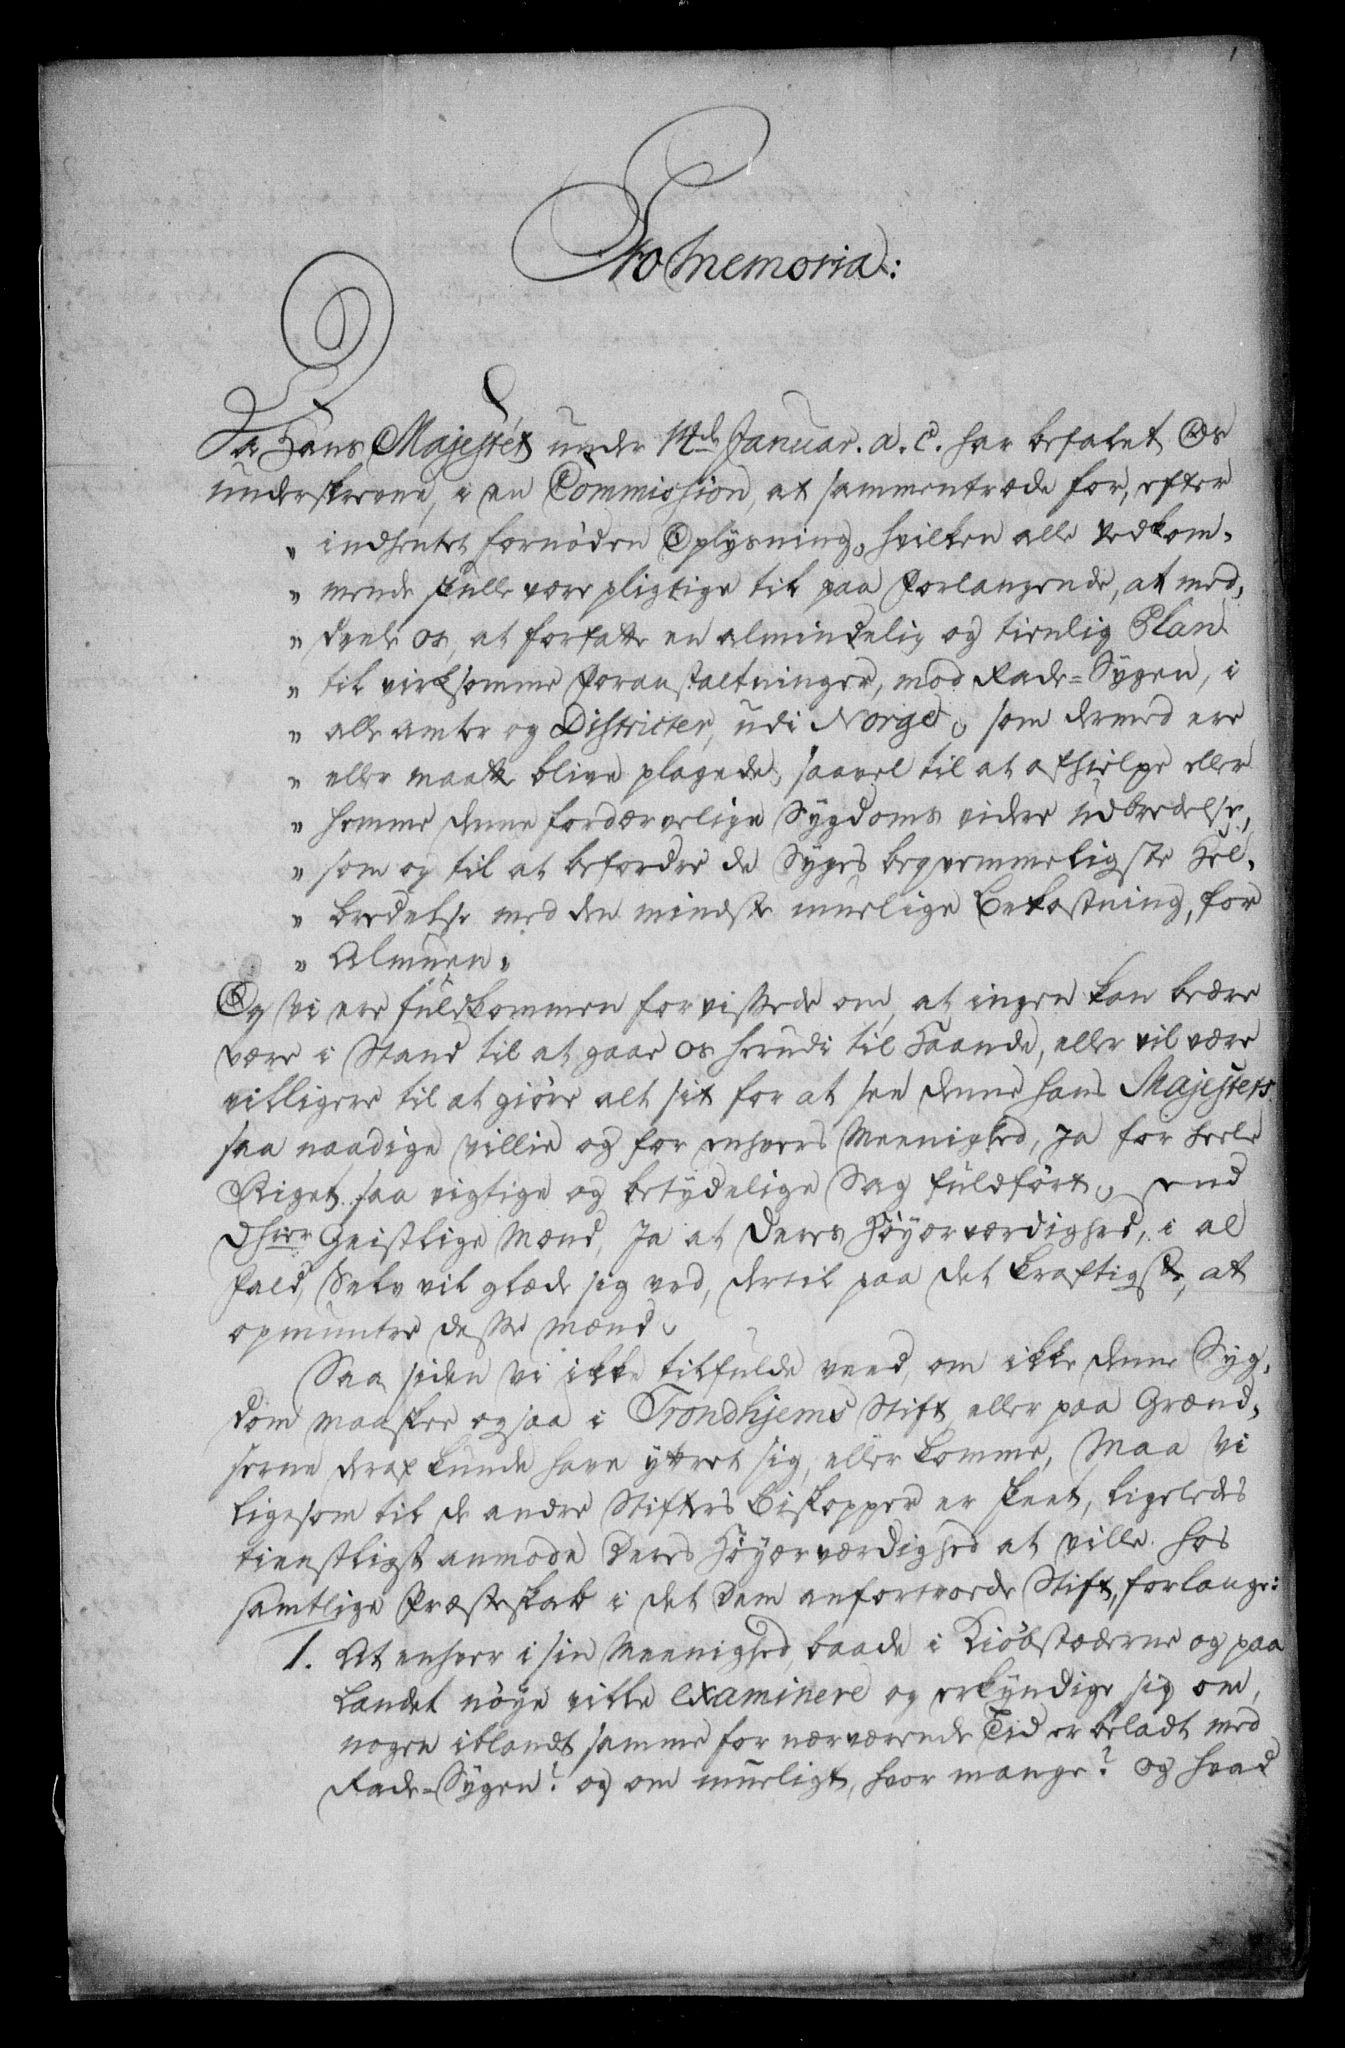 1
Pro Memoria:
Da Hans Majestet under 14de Januar. a. c. har befalet Os
underskrevne, i en Commission, at sammentræde for, efter
„ indhentet fornøden Oplysning, hvilken alle vedkom-
„ mende skulle være pligtige til paa Forlangende, at med-
„ deele os, at forfatte en almindelig og tienlig Plan
„ til virksomme Foranstaltninger, mod Rade-Sygen, i
„ alle Amter og Districter, udi Norge, som dermed ere
„ eller maatte blive plagede, saavel til at afhielpe eller
„ hemme denne fordærvelige Sygdoms videre Udbredelse,
„ som og til at befordre de Syges beqvemmeligste Hel-
„ bredelse med den mindste muelige Bekostning, for
„ Almuen„
Og Vi ere fuldkommen forvissede om, at ingen kan bedre
være i Stand til at gaae os herudi til Haande, eller vil være
villigere til at giöre alt sit for at see denne hans Majestets
saa naadige Villie og for enhvers Meenighed, Ja for heele
Riget saa vigtige og betydelige Sag fuldfört, end
Dhrr Geistlige Mænd, Ja at Deres Höyærværdighed, i al
Fald, Selv vil glæde sig ved, dertil paa det kraftigste, at
opmuntre desse Mænd.
Saa siden Vi ikke tilfulde veed, om ikke denne Syg-
dom maaskee ogsaa i Trondhjems Stift eller paa Grænd-
serne deraf kunde have yttret sig, eller komme, Maa Vi
ligesom til de andre Stifters Biskopper er skeet, ligeledes
tienstligst anmode Deres Höyærværdighed at ville hos
samtlige Præsteskab i det Dem anfortroede Stift, forlange:
1. At enhver i sin Meenighed, baade i Kiöbstæderne og paa
Landet nöye ville examinere og erkyndige sig om,
nogen iblandt samme for nærværende Tid er beladt med
Rade-Sygen? og om mueligt, hvor mange? og hvad